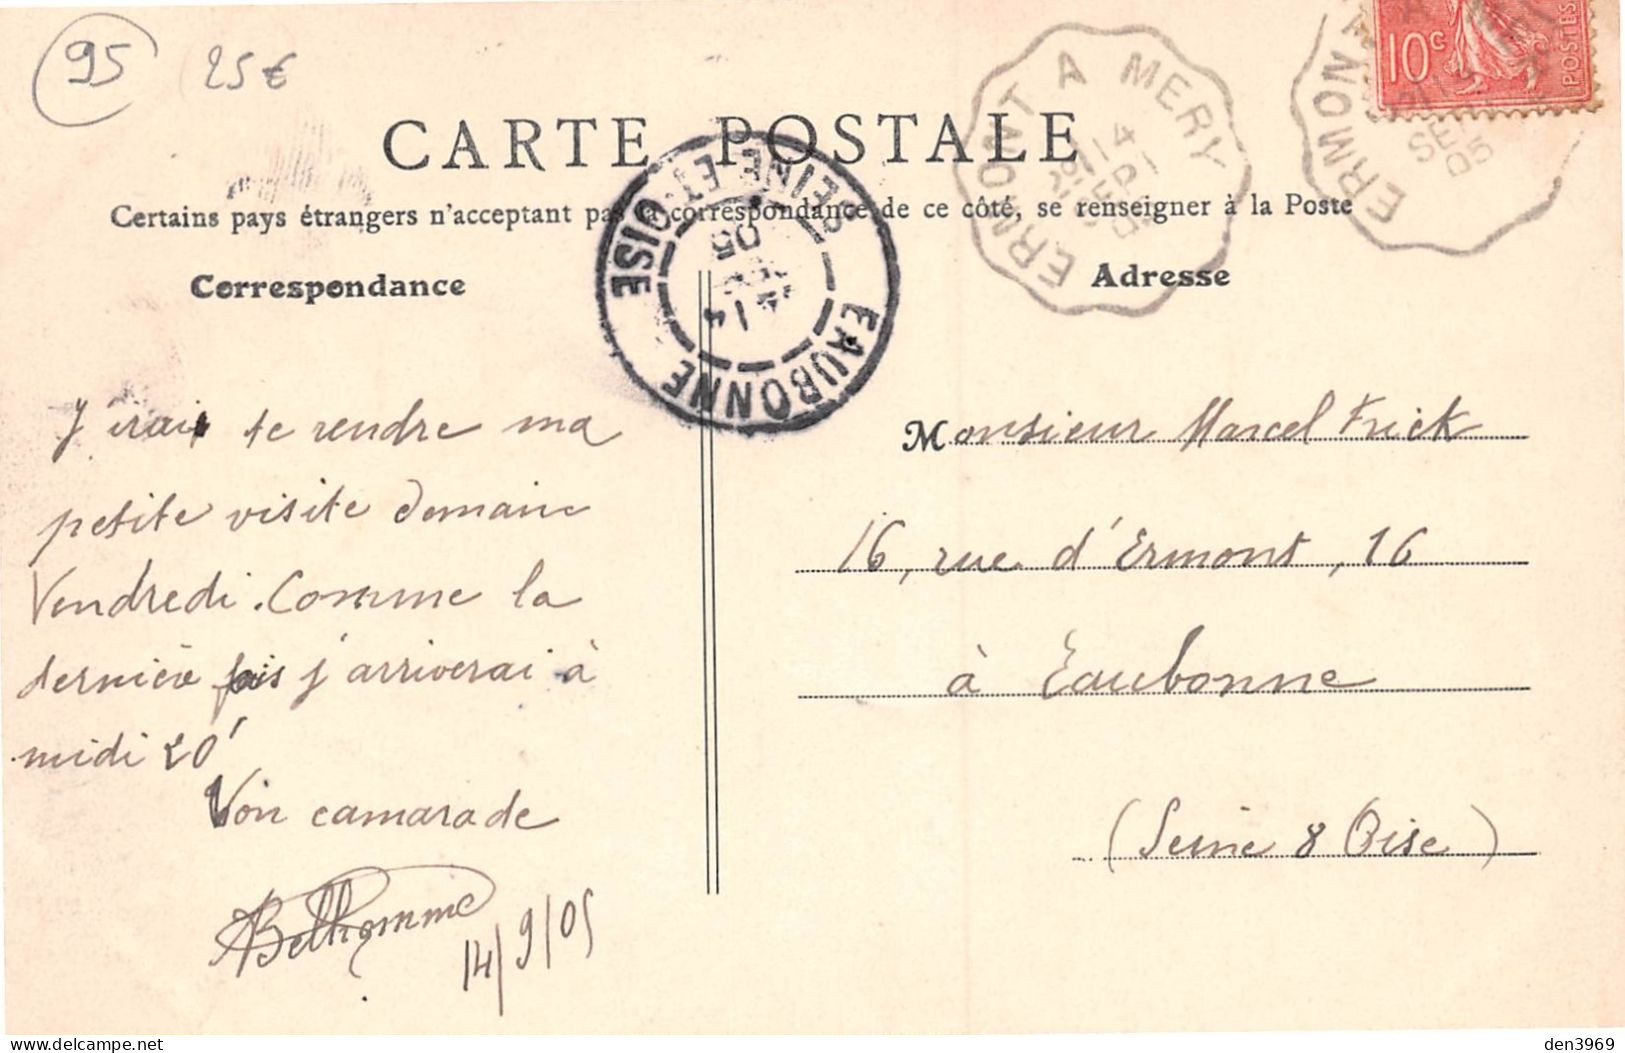 95 25€
10c
POSTES
ERMONT A MERY
14
SEPT
05
ERMON
SE
05
CARTE POSTALE
Certains pays étrangers n'acceptent pas la correspondance de ce côté, se renseigner à la Poste
EAUBONNE
SEINE-ET-OISE
14
05
Correspondance
Adresse
J'irai te rendre ma
petite visite demain
Vendredi. Comme la
dernière fois j'arriverai à
midi 20'
Ton camarade
ABelhomme
14/9/05
Monsieur Marcel Frick
16, rue d'Ermont, 16
à Eaubonne
(Seine & Oise)
den3969